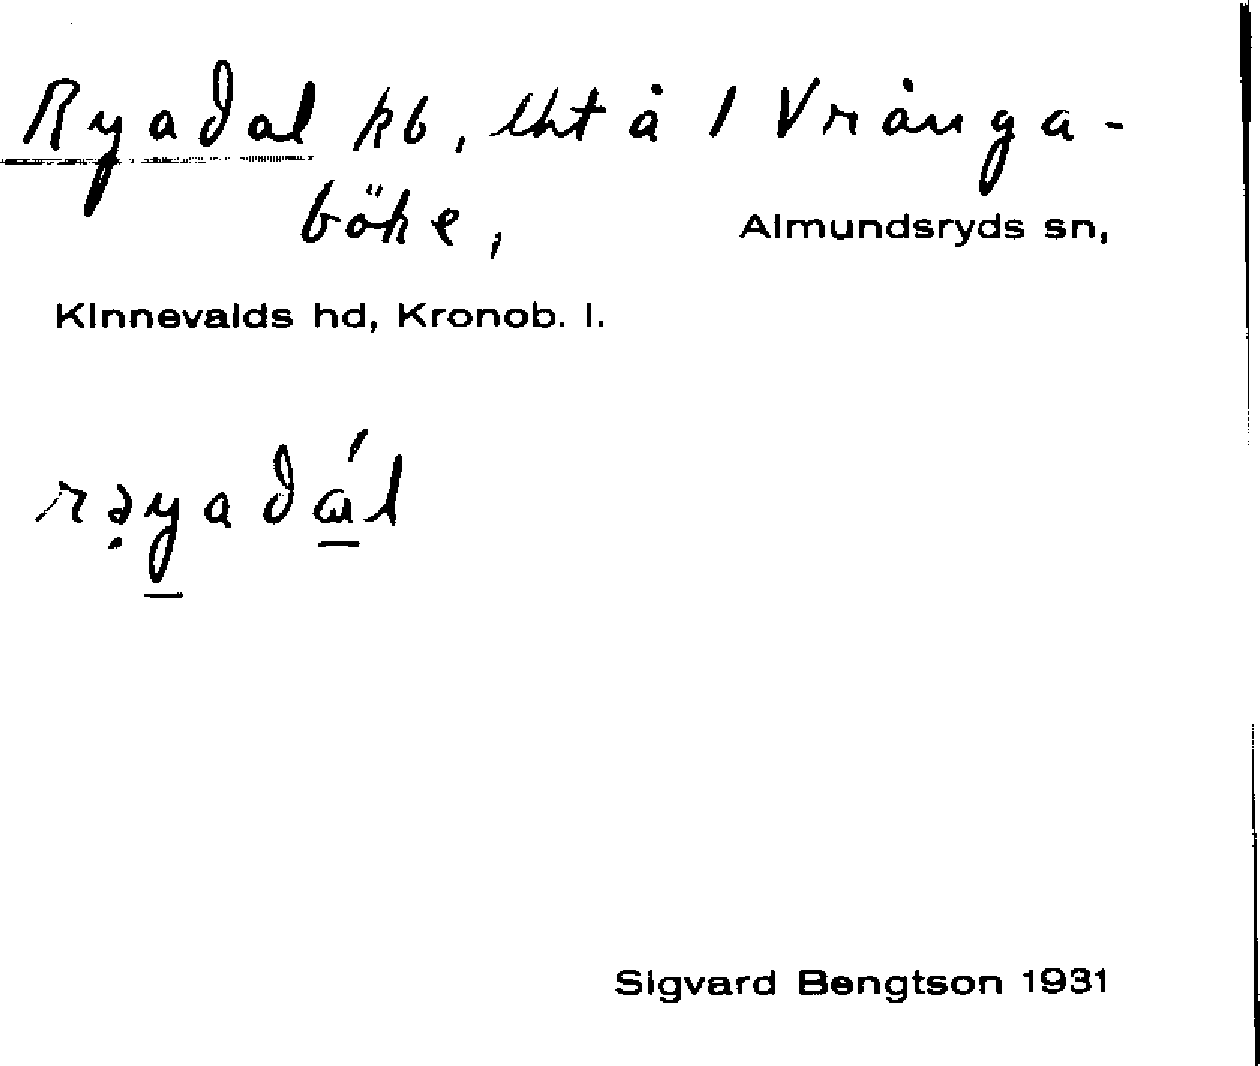 Ryadal kb, lht å 1 Vrånga-
böke, Almundsryds sn,
Kinnevalds hd, Kronob. l.
rə̣yadál
Sigvard Bengtson 1931